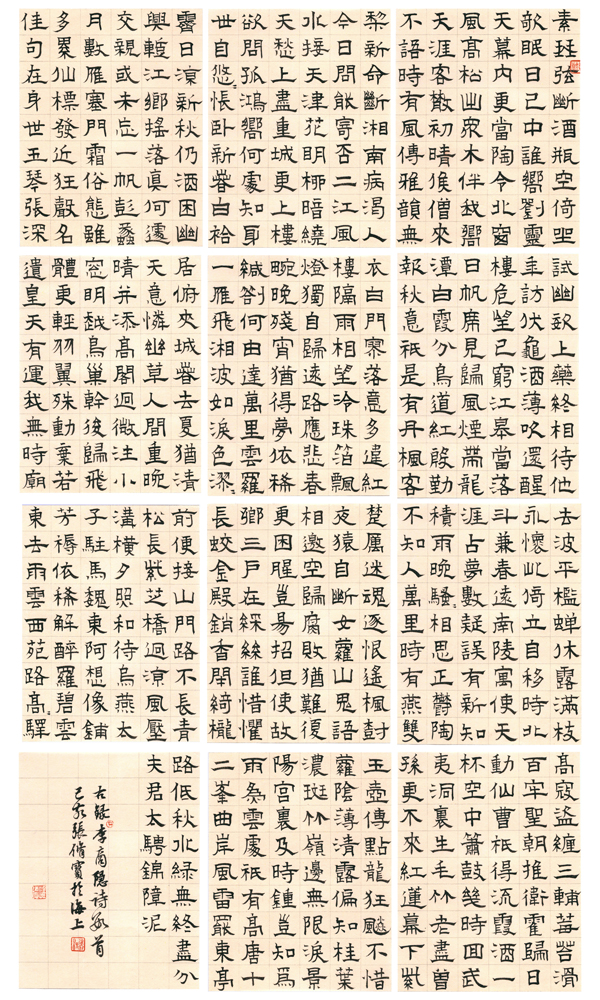 素琴弦斷酒瓶空倚坐
欹眠日已中誰嚮劉靈
天幕內更當陶令北窗
風高松出眾木伴我嚮
天涯客散初晴後僧來
不語時有風傳雅韻無
試幽致上藥終相待他
年訪伏龜酒薄吹還醒
樓危望已窮江皋當落
日帆席見歸風煙帶龍
潭白霞分鳥道紅殷勤
報秋意祇是有丹楓客
去波平檻蟬休露滿枝
永懷此倚立自移時北
斗兼春遠南陵寓使天
涯占夢數疑誤有新知
積雨晚騷〻相思正鬱陶
不知人萬里時有燕雙
高寇盜纏三輔莓苔滑
百牢聖朝推衛霍歸日
動仙曹柢得流霞酒一
杯空中簫鼓幾時回武
夷洞裏生毛竹老盡曾
孫更不來紅蓮幕下紫
黎新命斷湘南病渴人
今日問能寄否二江風
水接天津花明柳暗繞
天愁上盡重城更上樓
欲問孤鴻嚮何處知身
世自悠〻悵臥新春白袷
衣白門寥落意多違紅
樓隔雨相望冷珠箔飄
燈獨自歸遠路應悲春
畹晚殘宵猶得夢依稀
緘劄何由達萬里雲羅
一雁飛湘波如淚色漻〻
楚厲迷魂逐恨遙楓樹
夜猿自斷女蘿山鬼語
相邀空歸腐敗猶難復
更困腥豈易招但使故
鄉三戶在綵絲誰惜懼
長蛟金殿銷香閉綺櫳
玉壺傳點龍狂飆不惜
蘿陰薄清露偏知桂葉
濃斑竹嶺邊無限淚景
陽宮裏及時鍾豈知爲
雨爲雲處祇有高唐十
二峯曲岸風雷罷東亭
霽日涼新秋仍酒困幽
興暫江鄉搖落真何遽
交親或未忘一帆彭蠡
月數雁塞門霜俗態雖
多累仙標發近狂聲名
佳句在身世玉琴張深
居俯夾城春去夏猶清
天意憐幽草人間重晚
晴并添高閣迥微注小
窗明越鳥巢幹後歸飛
體更輕羽翼殊勳棄若
遺皇天有運我無時廟
前便接山門路不長青
松長紫芝橋迴涼風壓
溝橫夕照和待烏燕太
子駐馬魏東阿想像鋪
芳褥依稀解醉羅碧雲
東去雨雲西苑路高〻驛
路低秋水綠無終盡分
夫君太騁錦障泥
右錄李商隱詩數首
己亥張寶於海上